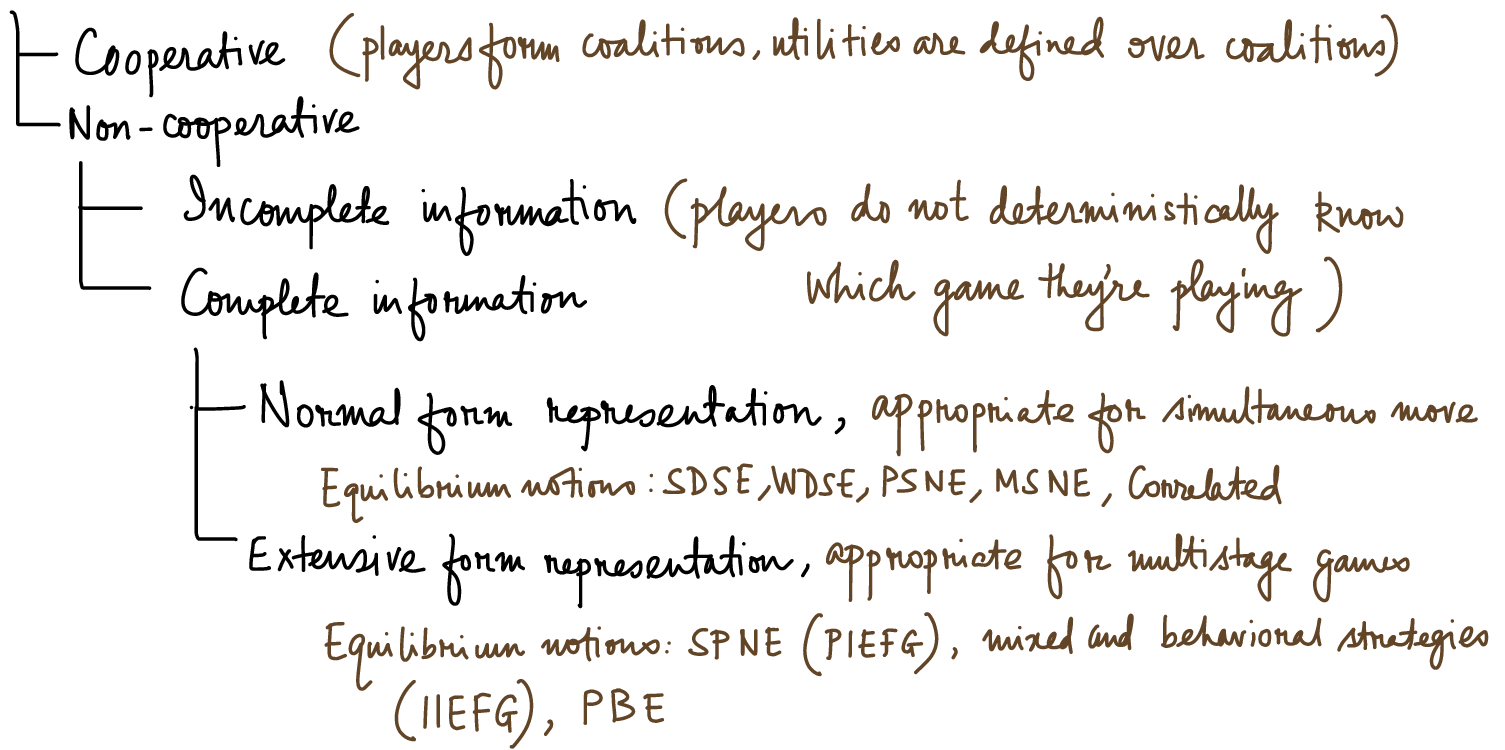 Cooperative (players form coalitions, utilities are defined over coalitions)
Non-cooperative
Incomplete information (players do not deterministically know
which game they're playing)
Complete information
Normal form representation, appropriate for simultaneous move
Equilibrium notions: SDSE, WDSE, PSNE, MSNE, Correlated
Extensive form representation, appropriate for multistage games
Equilibrium notions: SPNE (PIEFG), mixed and behavioral strategies
(IIEFG), PBE